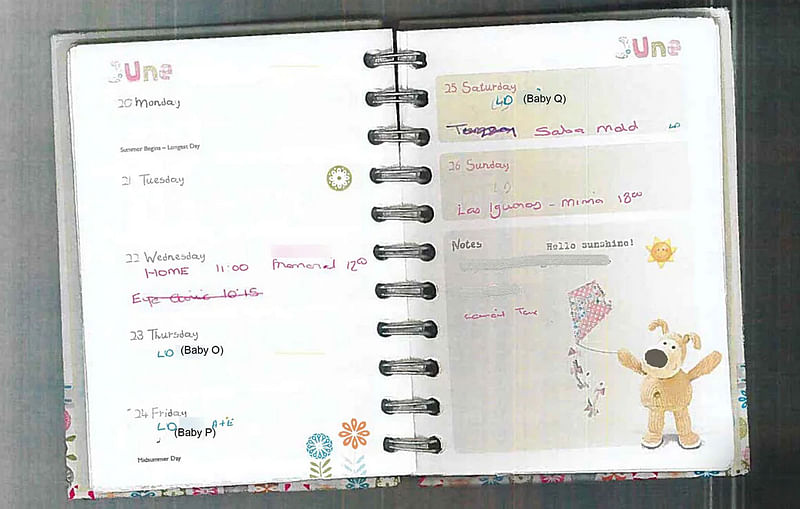 June
20 Monday
Summer Begins – Longest Day
21 Tuesday
22 Wednesday
HOME 11:00 Memorial 12⁰⁰
Eye Clinic 10:15
23 Thursday
LD (Baby O)
24 Friday
LD A+E
(Baby P)
Midsummer Day
June
25 Saturday
LD (Baby Q)
Salsa LD
26 Sunday
LD
Las Iguanas - 18⁰⁰
Notes Hello sunshine!
Tax